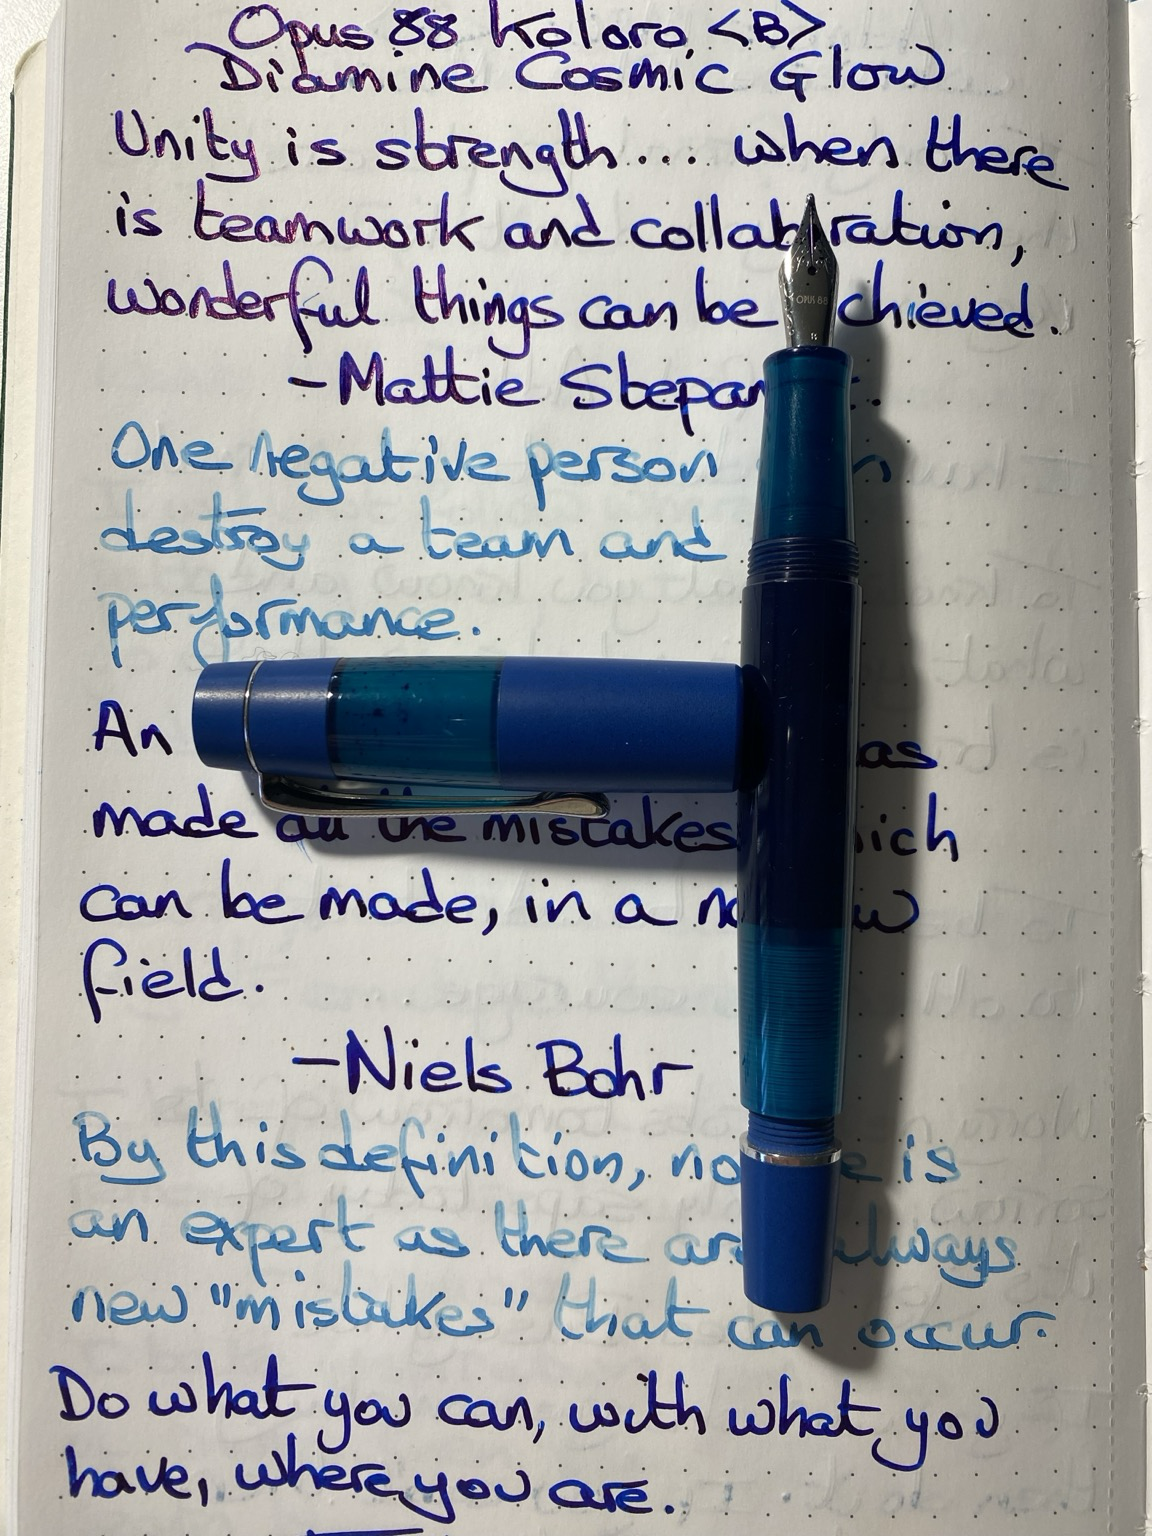 Opus 88 Koloro <B>
Diamine Cosmic Glow
Unity is strength... when there
is teamwork and collaboration,
wonderful things can be achieved.
-Mattie Stepan
One negative person
destroy a team and
performance.
An as
made all the mistakes which
can be made, in a
field.
-Niels Bohr
By this definition, no is
an expert as there are always
new "mistakes" that can occur.
Do what you can, with what you
have, where you are.
OPUS 88
B